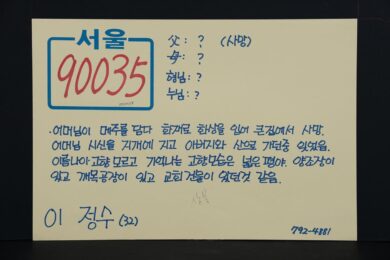 서울
90035
父 : ? (사망)
母 : ?
형님 : ?
누님 : ?
·어머님이 메주를 담다 화재로 화상을 입어 큰집에서 사망.
어머님 시신을 지게에 지고 아버지와 산으로 가던중 잃었음.
이름나이 고향 모르고 기억나는 고향모습은 넓은 평야. 양조장이
있고 깨묵공장이 있고 교회 건물이 있었던것 같음.
이 정수 (32)
792-4881